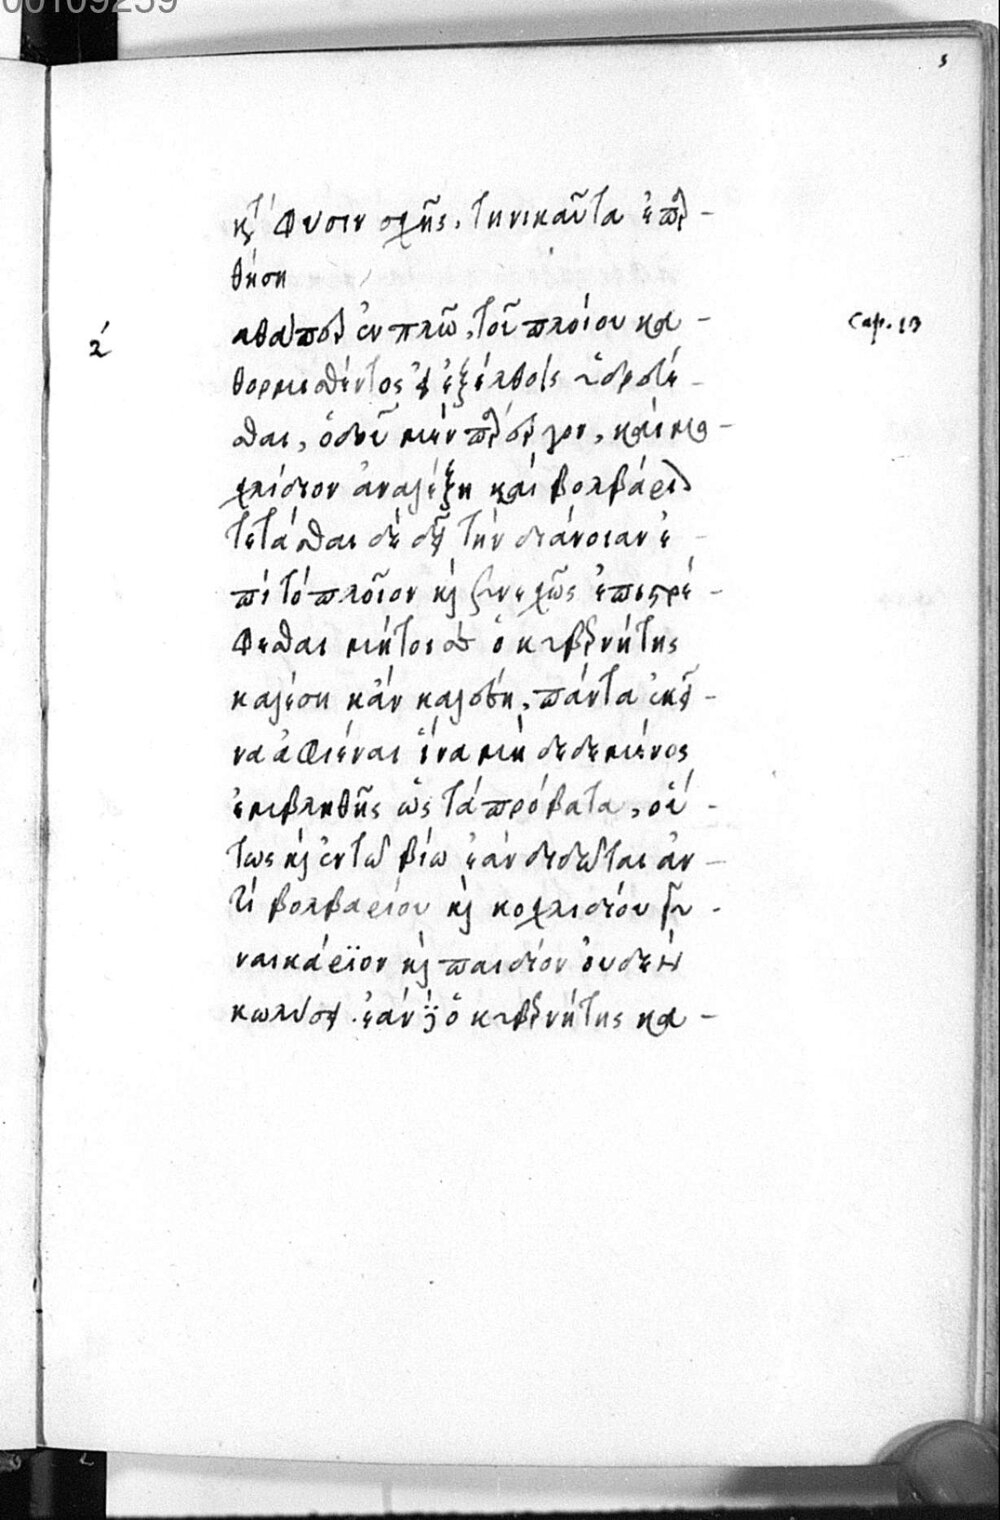 00109259
5
κτ̀ φύσιν σχῇς, τηνικαῦτα ἐπάρ-
θητι
αθάπερ ἐν πλῶ, τοῦ πλοίου κα-
Cap. 13
θορμισθέντος εἰ ἐξέλθοις ὑδρεύ-
σθαι, ὁδοῦ μὲν πάρεργον, καὶ κο-
χλίδιον ἀναλέξη καὶ βολβάριον
τετάσθαι δὲ δεῖ τὴν διάνοιαν ἐ-
πὶ τὸ πλοῖον κὶ συνεχῶς ἐπιστρέ-
φεσθαι μήτοι ὁ κυβερνήτης
καλέση κἂν καλέση, πάντα ἐκεῖ-
να ἀφιέναι ἵνα μὴ δεδεμένος
ἐμβληθῇς ὡς τὰ πρόβατα, οὕ-
τως κὶ ἐν τῷ βίω ἐὰν διδῶται ἀν-
τὶ βολβαρίου κὶ κοχλιδίου γυ-
ναικάριον κὶ παιδίον οὐδὲν
κωλύσει. ἐὰν δὲ ὁ κυβερνήτης κα-